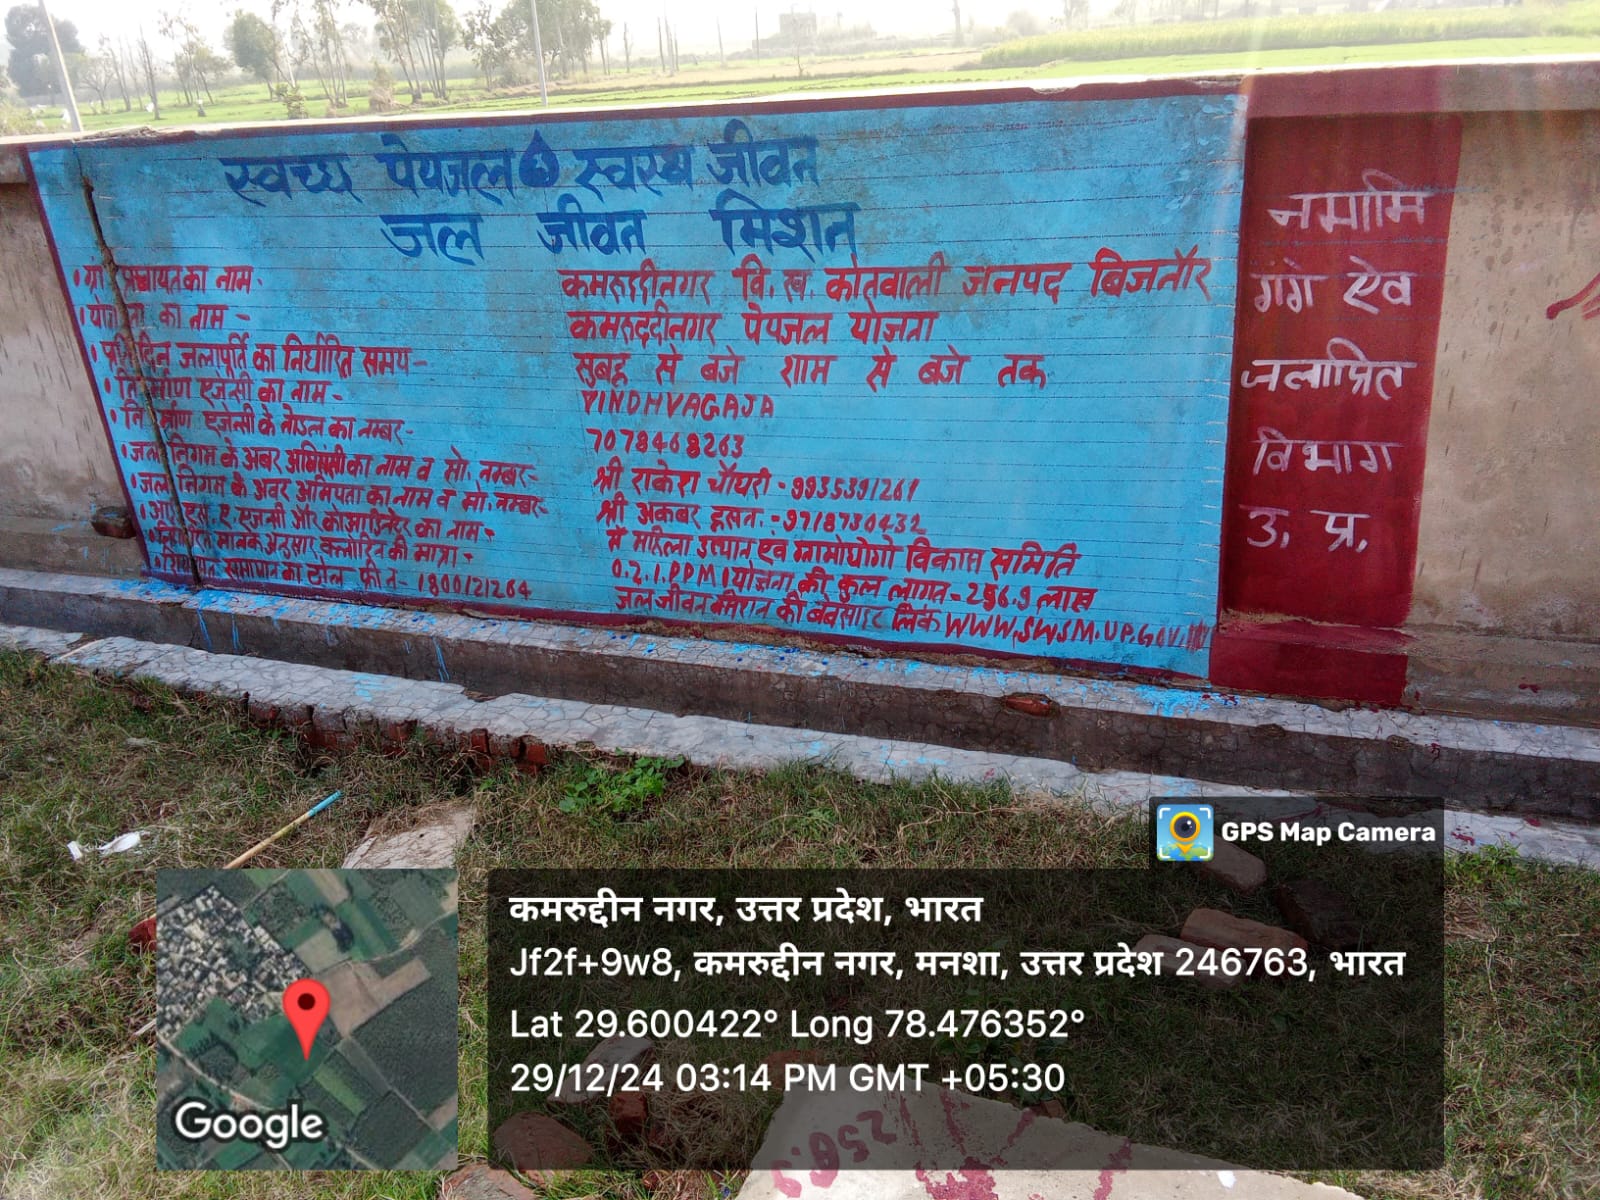 स्वच्छ पेयजल स्वस्थ जीवन
जल जीवन मिशन
• ग्रा पंचायत का नाम - कमरुद्दीनगर वि. ख. कोतवाली जनपद बिजनौर
• योजना का नाम - कमरुद्दीनगर पेयजल योजना
• प्रतिदिन जलापूर्ति का निर्धारित समय - सुबह से बजे शाम से बजे तक
• निर्माण एजंसी का नाम - VINDHVAGAJA
• निर्माण एजेन्सी के नोडल का नम्बर - 7078468263
• जल निगम के अवर अभि का नाम व मो. नम्बर - श्री राकेश चौधरी - 9935391261
• जल निगम के अवर अभियंता का नाम व मो. नम्बर - श्री अकबर हसन - 9718730432
• आई. एस. ए. एजन्सी और कोआडिनेटर का नाम - मै महिला उत्थान एवं ग्रामोद्योगो विकास समिति
• निर्धारित मानक अनुसार क्लोरिन की मात्रा - 0.2.1.PPM। योजना की कुल लागत - 256.9 लाख
• शिकायत समाधान का टोल फ्री न - 1800121264 जल जीवन मिशन की बेवसाइट लिंक WWW.SWSM.UP.GOV.IN
नमामि
गंगे ऐव
जलाप्रित
विभाग
उ, प्र,
256.9
GPS Map Camera
कमरुद्दीन नगर, उत्तर प्रदेश, भारत
Jf2f+9w8, कमरुद्दीन नगर, मनशा, उत्तर प्रदेश 246763, भारत
Lat 29.600422° Long 78.476352°
29/12/24 03:14 PM GMT +05:30
Google